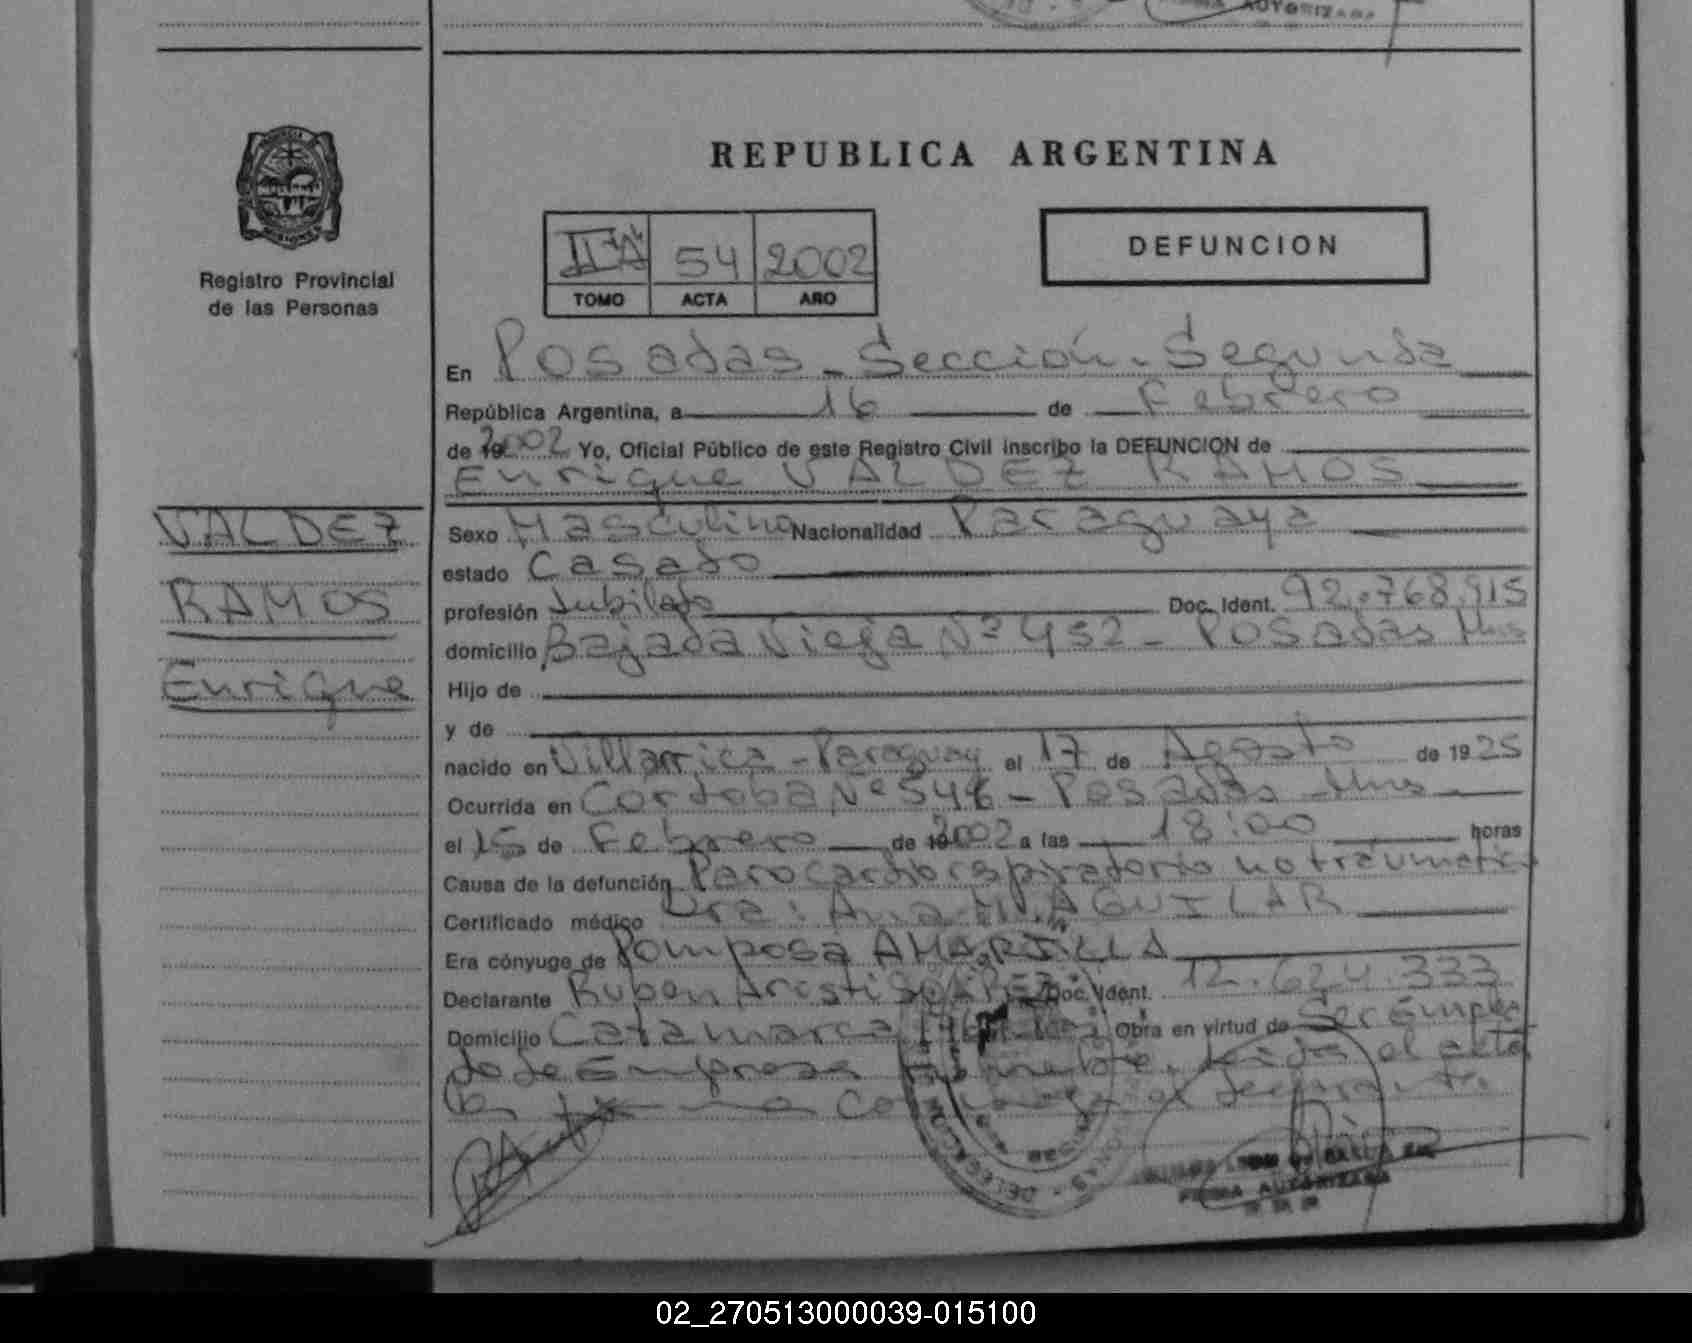 AUTORIZADA
PROVINCIA
MISIONES
Registro Provincial
de las Personas
VALDEZ
RAMOS
Enrique
REPUBLICA ARGENTINA
54 2002
TOMO ACTA AÑO
DEFUNCION
En Posadas - Sección - Segunda
República Argentina, a 16 de Febrero
de 19 2002 Yo, Oficial Público de este Registro Civil inscribo la DEFUNCION de
Enrique VALDEZ RAMOS
Sexo Masculino Nacionalidad Paraguaya
estado Casado
profesión Jubilado Doc. Ident. 92.768.915
domicilio Bajada Vieja Nº 452 - Posadas Mnes
Hijo de
y de
nacido en Villarrica - Paraguay el 17 de Agosto de 1925
Ocurrida en Cordoba Nº 546 - Posadas Mnes
el 15 de Febrero de 19 2002 a las 18:00 horas
Causa de la defunción Paro cardiorespiratorio no traumatico
Certificado médico Dra: Ana M. AGUILAR
Era cónyuge de Pomposa AMARILLA
Declarante Ruben Doc. Ident. 12.624.333
Domicilio Catamarca Obra en virtud de Ser Emplea
do de Empresa Funebre. Leida el acta
la firma el declarante.
DELEGACION
FIRMA AUTORIZADA
02_270513000039-015100